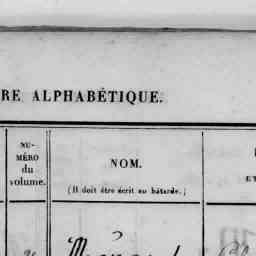 RE ALPHABÉTIQUE.
NU-
MÉRO
du
volume.
NOM.
(Il doit être écrit en bâtarde.)
ET